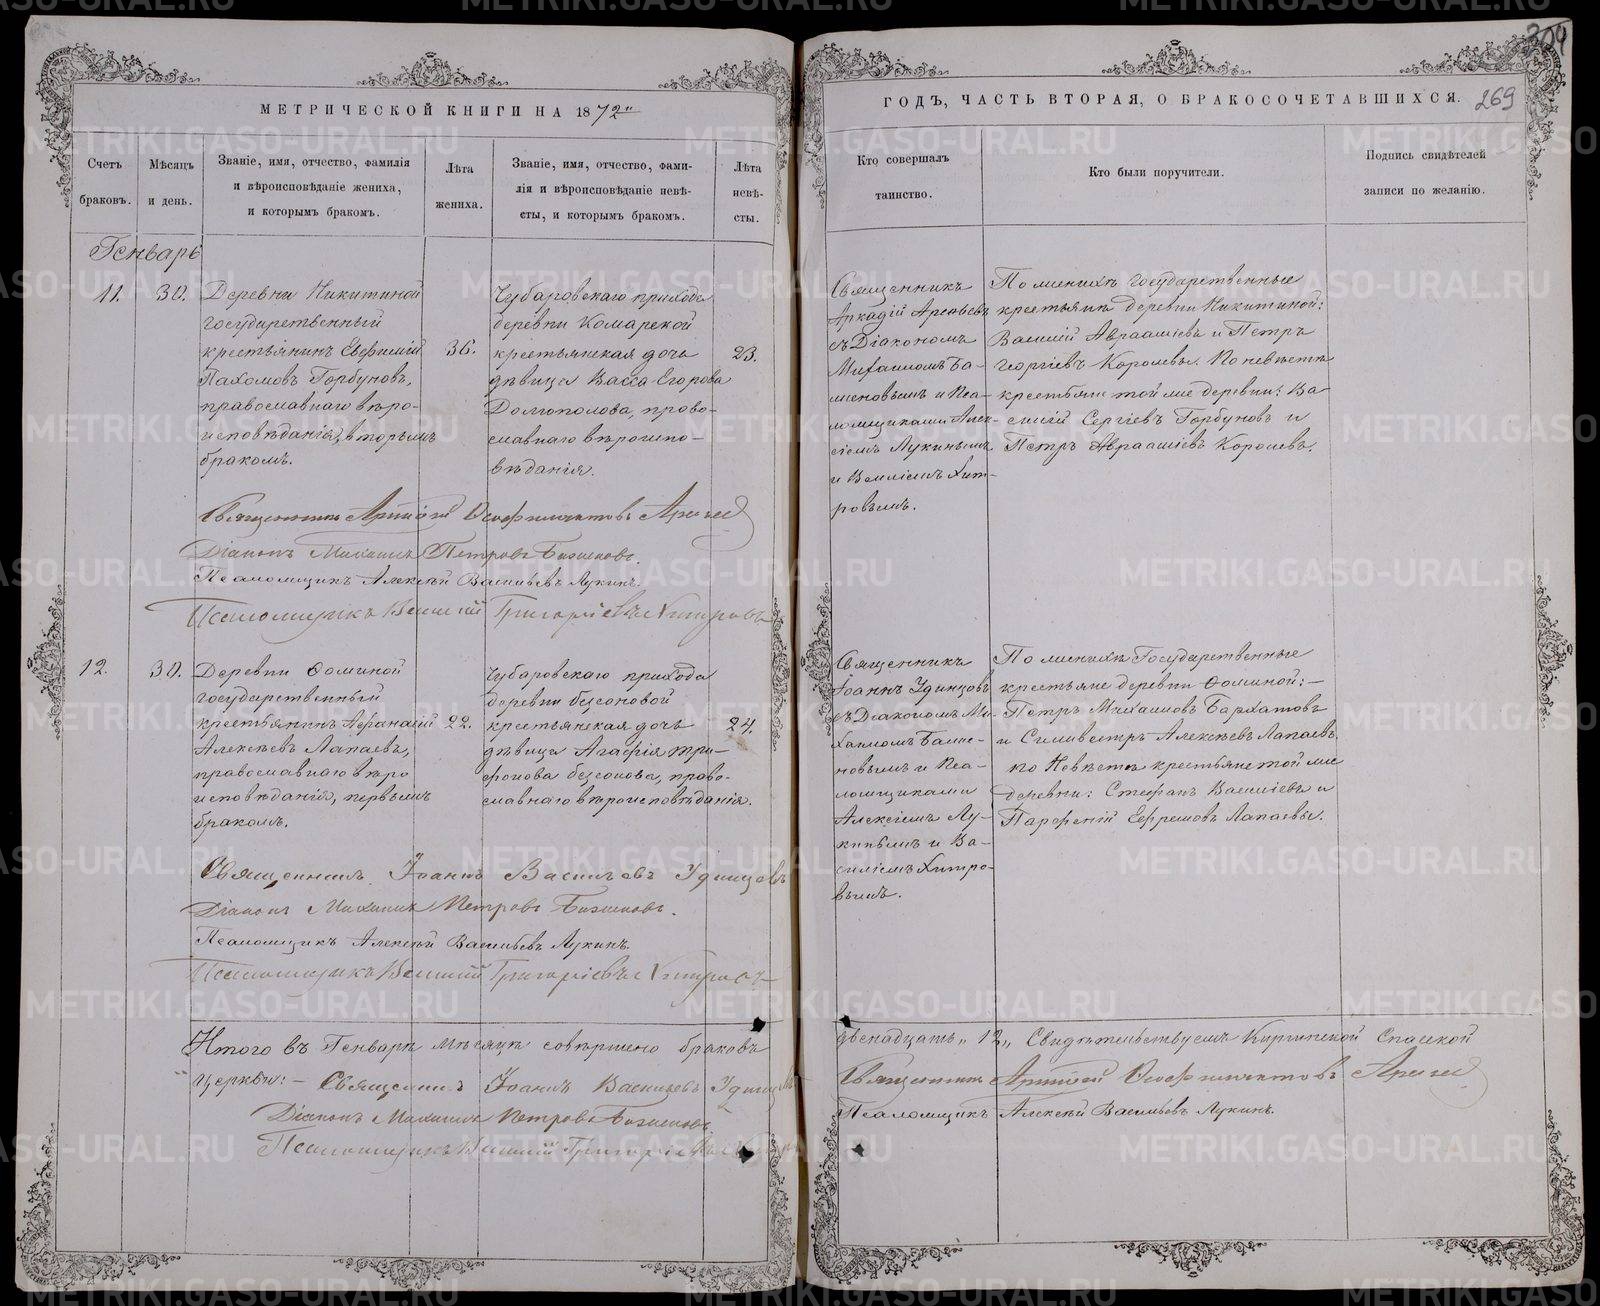 304
МЕТРИЧЕСКОЙ КНИГИ НА 1872
ГОДЪ, ЧАСТЬ ВТОРАЯ, О БРАКОСОЧЕТАВШИХСЯ.
269
Счетъ браковъ.
Мѣсяцъ и день.
Званіе, имя, отчество, фамилія
и вѣроисповѣданіе жениха,
и которымъ бракомъ.
Лѣта жениха.
Званіе, имя, отчество, фами-
лія и вѣроисповѣданіе невѣ-
сты, и которымъ бракомъ.
Лѣта невѣ-
сты.
Кто совершалъ
таинство.
Кто были поручители.
Подпись свидѣтелей
записи по желанію.
Генварь
11.
30.
Деревни Никитиной
государственный
крестьянинъ Евфимій
Пахомовъ Горбуновъ,
православнаго вѣро-
исповѣданія, вторымъ
бракомъ.
36.
Чубаровскаго прихода
деревни Комарской
крестьянская дочь
дѣвица Васса Егорова
Долгополова, право-
славнаго вѣроиспо-
вѣданія.
23.
Священникъ
Аркадій Арефьевъ
съ Діакономъ
Михаиломъ Ба-
женовымъ и Пса-
ломщиками Алек-
сіемъ Лукинымъ
и Василіемъ Хит-
ровымъ.
По женихѣ государственные
крестьяне деревни Никитиной:
Василій Авраамiевъ и Петръ
Георгіевъ Королевы. По невѣстѣ
крестьяне той же деревни: Ва-
силій Сергіевъ Горбуновъ и
Петръ Авраамiевъ Королевъ.
Священникъ Феофилактовъ
Діаконъ Михаилъ Петровъ Баженовъ.
Псаломщикъ Алексѣй Васильевъ Лукинъ.
Псаломщикъ Василій Григоріевъ Хитровъ
12.
30.
Деревни Ѳоминой
государственный
крестьянинъ Аѳанасій
Алексѣевъ Лапаевъ,
православнаго вѣро
исповѣданія, первымъ
бракомъ.
22.
Чубаровскаго прихода
деревни Бесоновой
крестьянская дочь
дѣвица Агафія Три-
фонова Бесонова, право-
славнаго вѣроисповѣданія.
24.
Священникъ
Іоаннъ Удинцовъ
съ Діакономъ Ми-
хаиломъ Баже-
новымъ и Пса-
ломщиками
Алексіемъ Лу-
кинымъ и Ва-
силіемъ Хитро-
вымъ.
По женихѣ Государственные
крестьяне деревни Ѳоминой:
Петръ Михаиловъ Бархатовъ
и Силивестръ Алексѣевъ Лапаевъ.
по Невѣстѣ крестьяне той же
деревни: Стефанъ Василіевъ и
Парфеній Ефремовъ Лапаевы.
Священникъ Іоаннъ Васильевъ Удинцовъ
Діаконъ Михаилъ Петровъ Баженовъ.
Псаломщикъ Алексѣй Васильевъ Лукинъ.
Псаломщикъ Василій Григоріевъ Хитровъ
Итого въ Генварѣ мѣсяцѣ совершено браковъ
двенадцать „12„ Свидѣтельствуемъ Киргинской Спасской
церкви: Священникъ Іоаннъ Васильевъ Удинцовъ
Священникъ Феофилактовъ
Діаконъ Михаилъ Петровъ Баженовъ
Псаломщикъ Алексѣй Васильевъ Лукинъ.
Псаломщикъ Василій Григоріевъ
METRIKI.GASO-URAL.RU